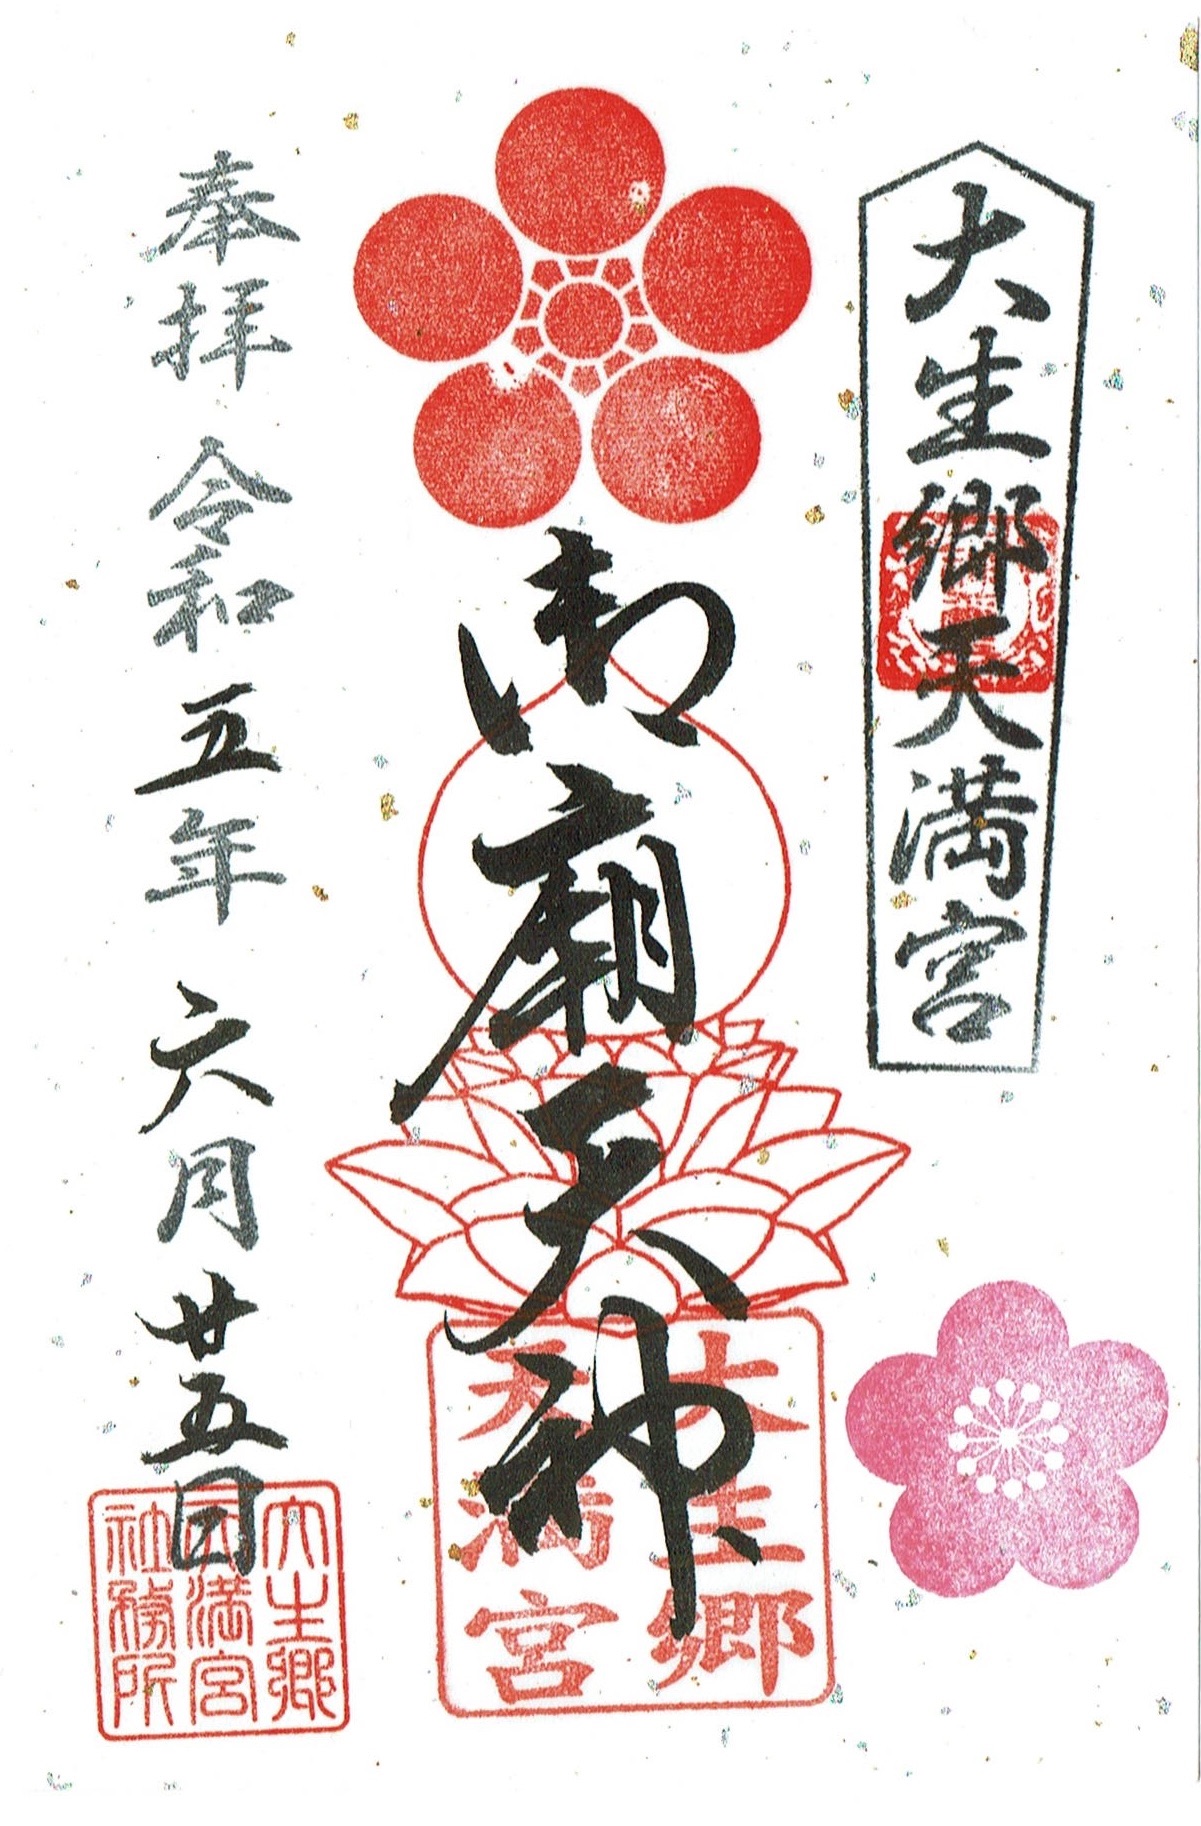 大生郷天満宮
御廟天神
大生郷
天満宮
奉拝 令和五年 六月廿五日
大生郷
天満宮
社務所